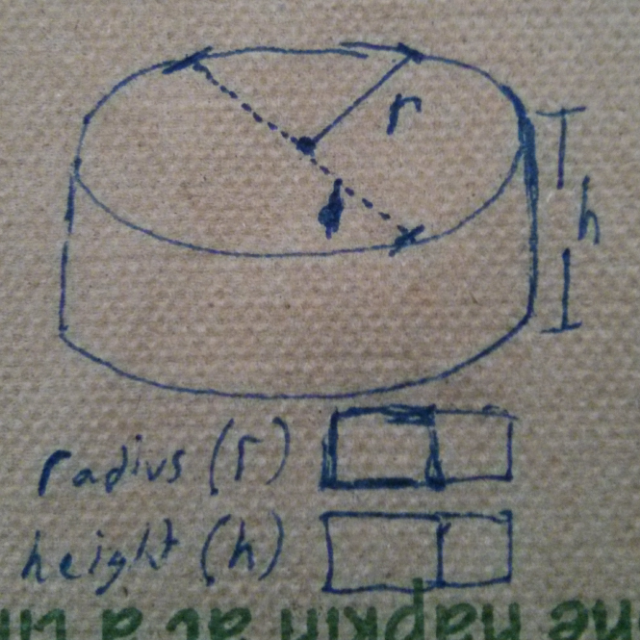 r
h
radius (r)
height (h)
napkin at a